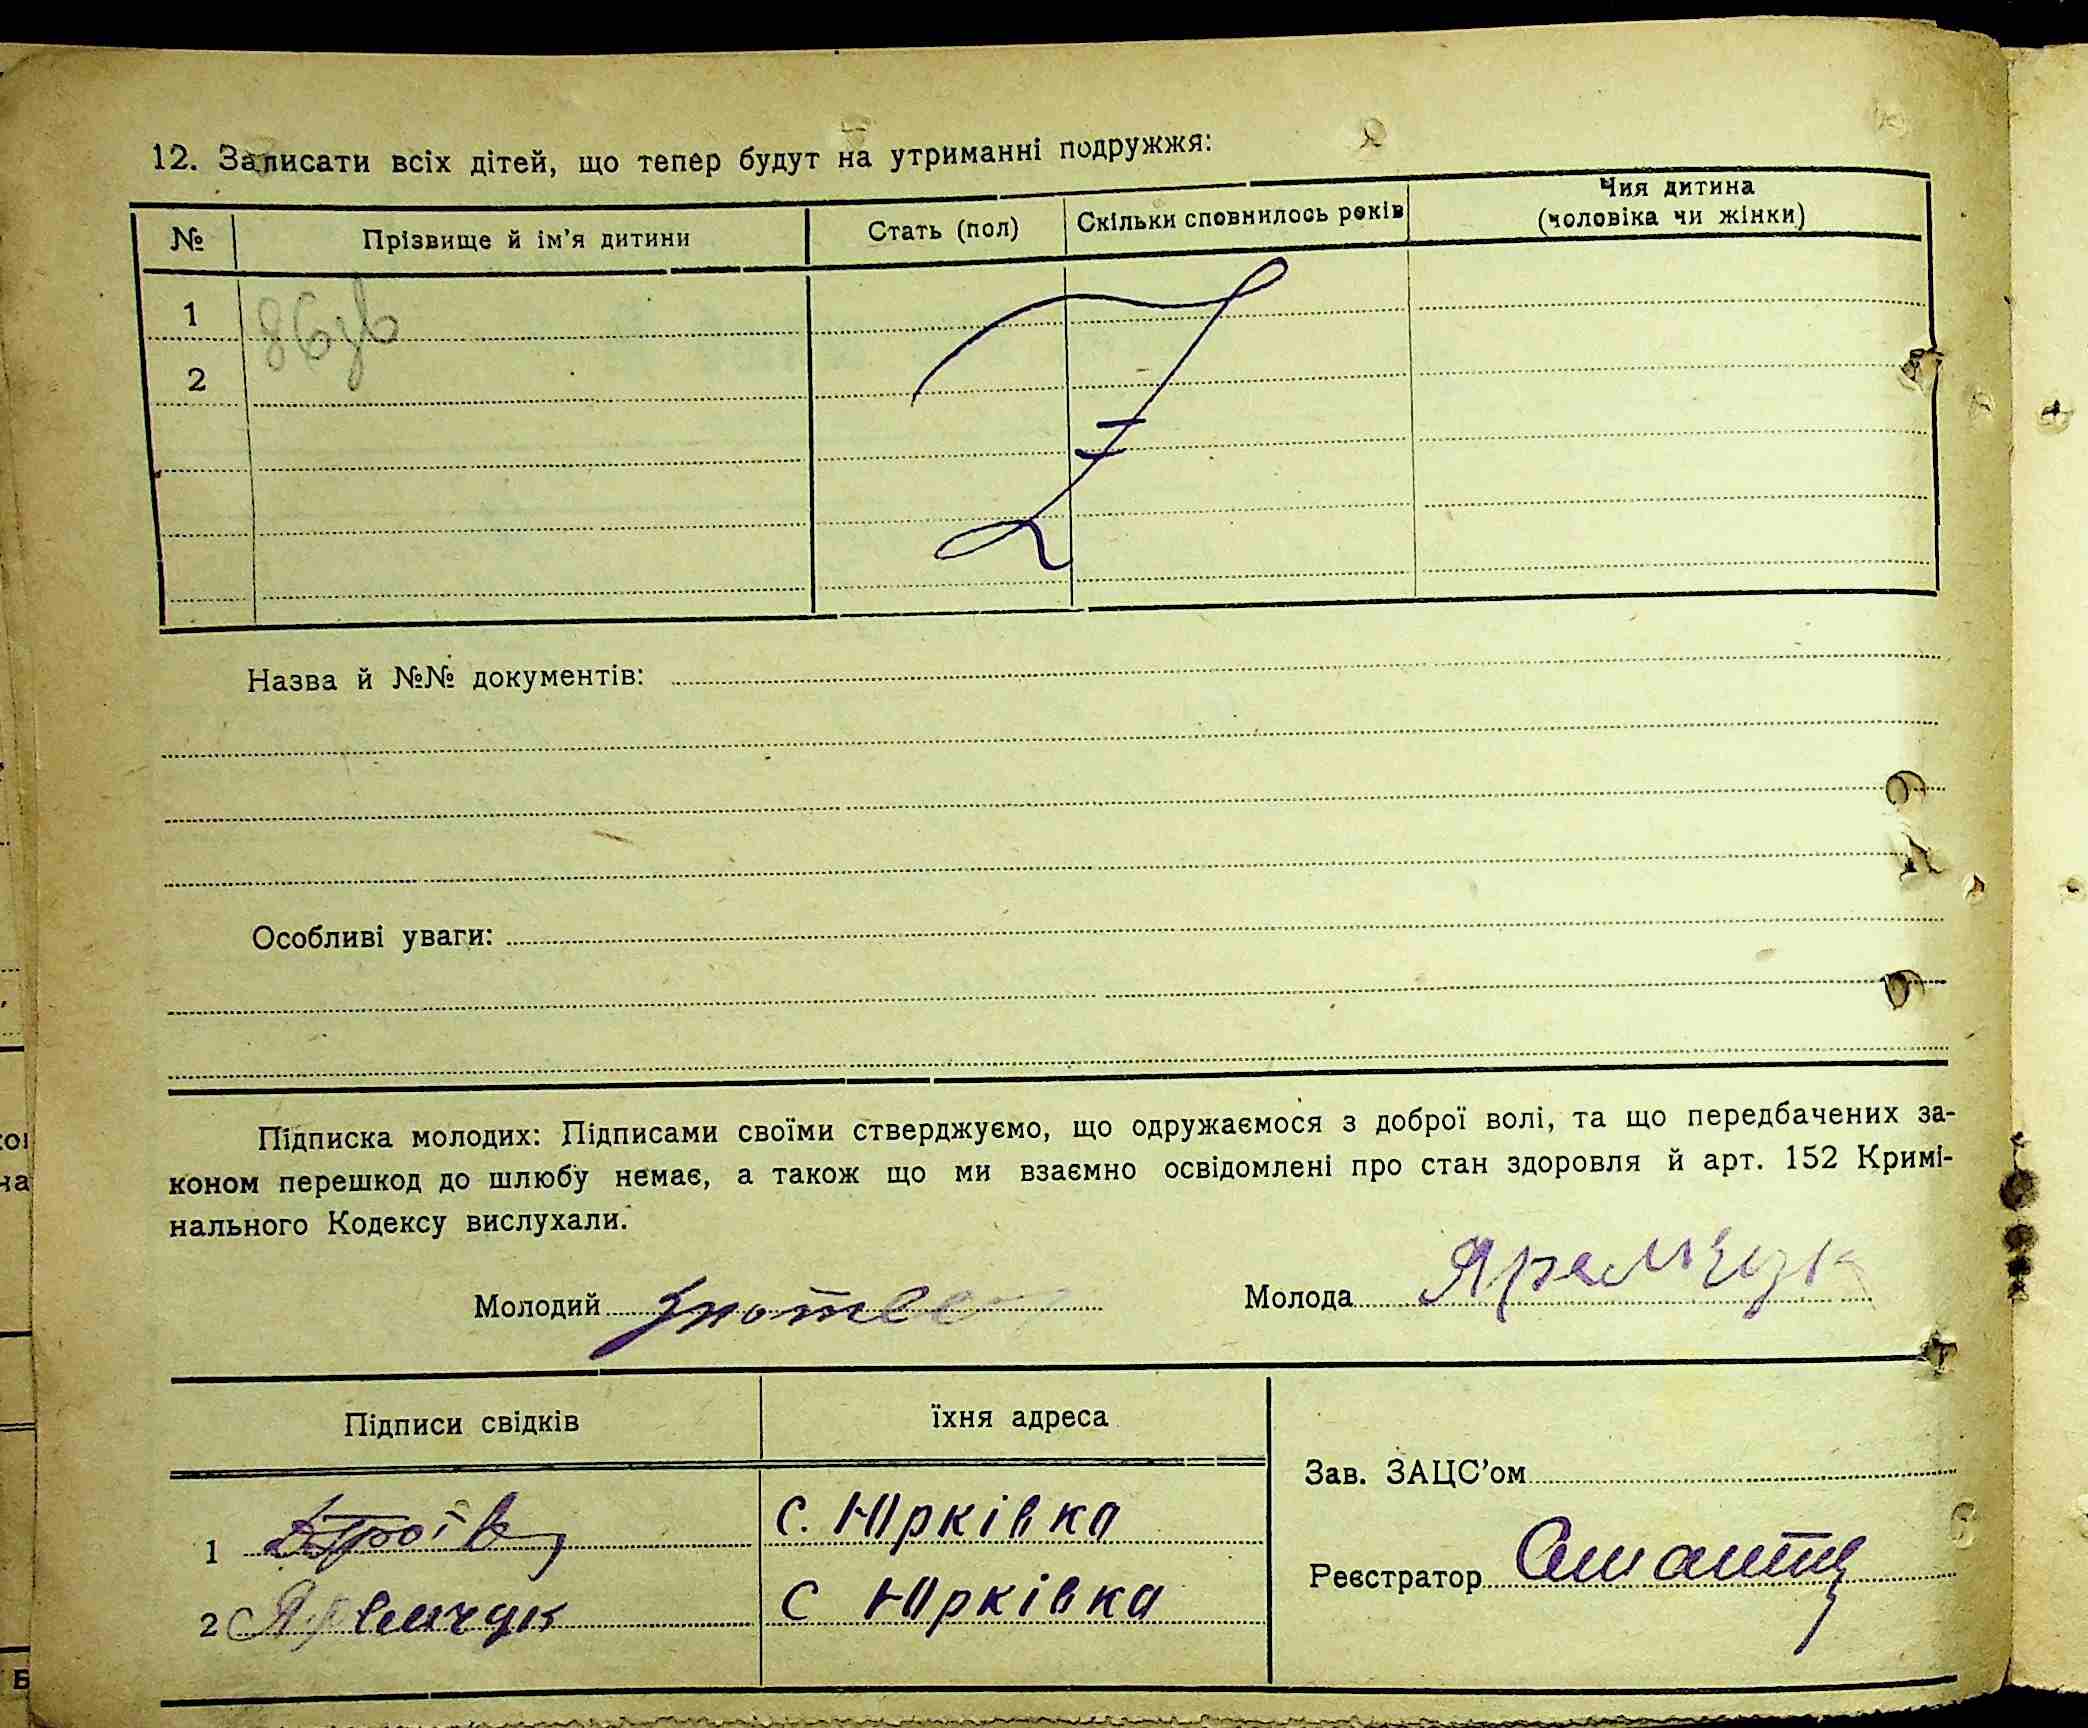 12. Записати всіх дітей, що тепер будут на утриманні подружжя:
№ Прізвище й ім'я дитини Стать (пол) Скільки сповнилось років Чия дитина
(чоловіка чи жінки)
1
2
Назва й №№ документів:
Особливі уваги:
Підписка молодих: Підписами своїми стверджуємо, що одружаємося з доброї волі, та що передбачених за-
коном перешкод до шлюбу немає, а також що ми взаємно освідомлені про стан здоровля й арт. 152 Кримі-
нального Кодексу вислухали.
Молодий Молода Яремчук
Підписи свідків їхня адреса
Зав. ЗАЦС'ом
1 с. Юрківка
Реєстратор
2 Яремчук с Юрківка